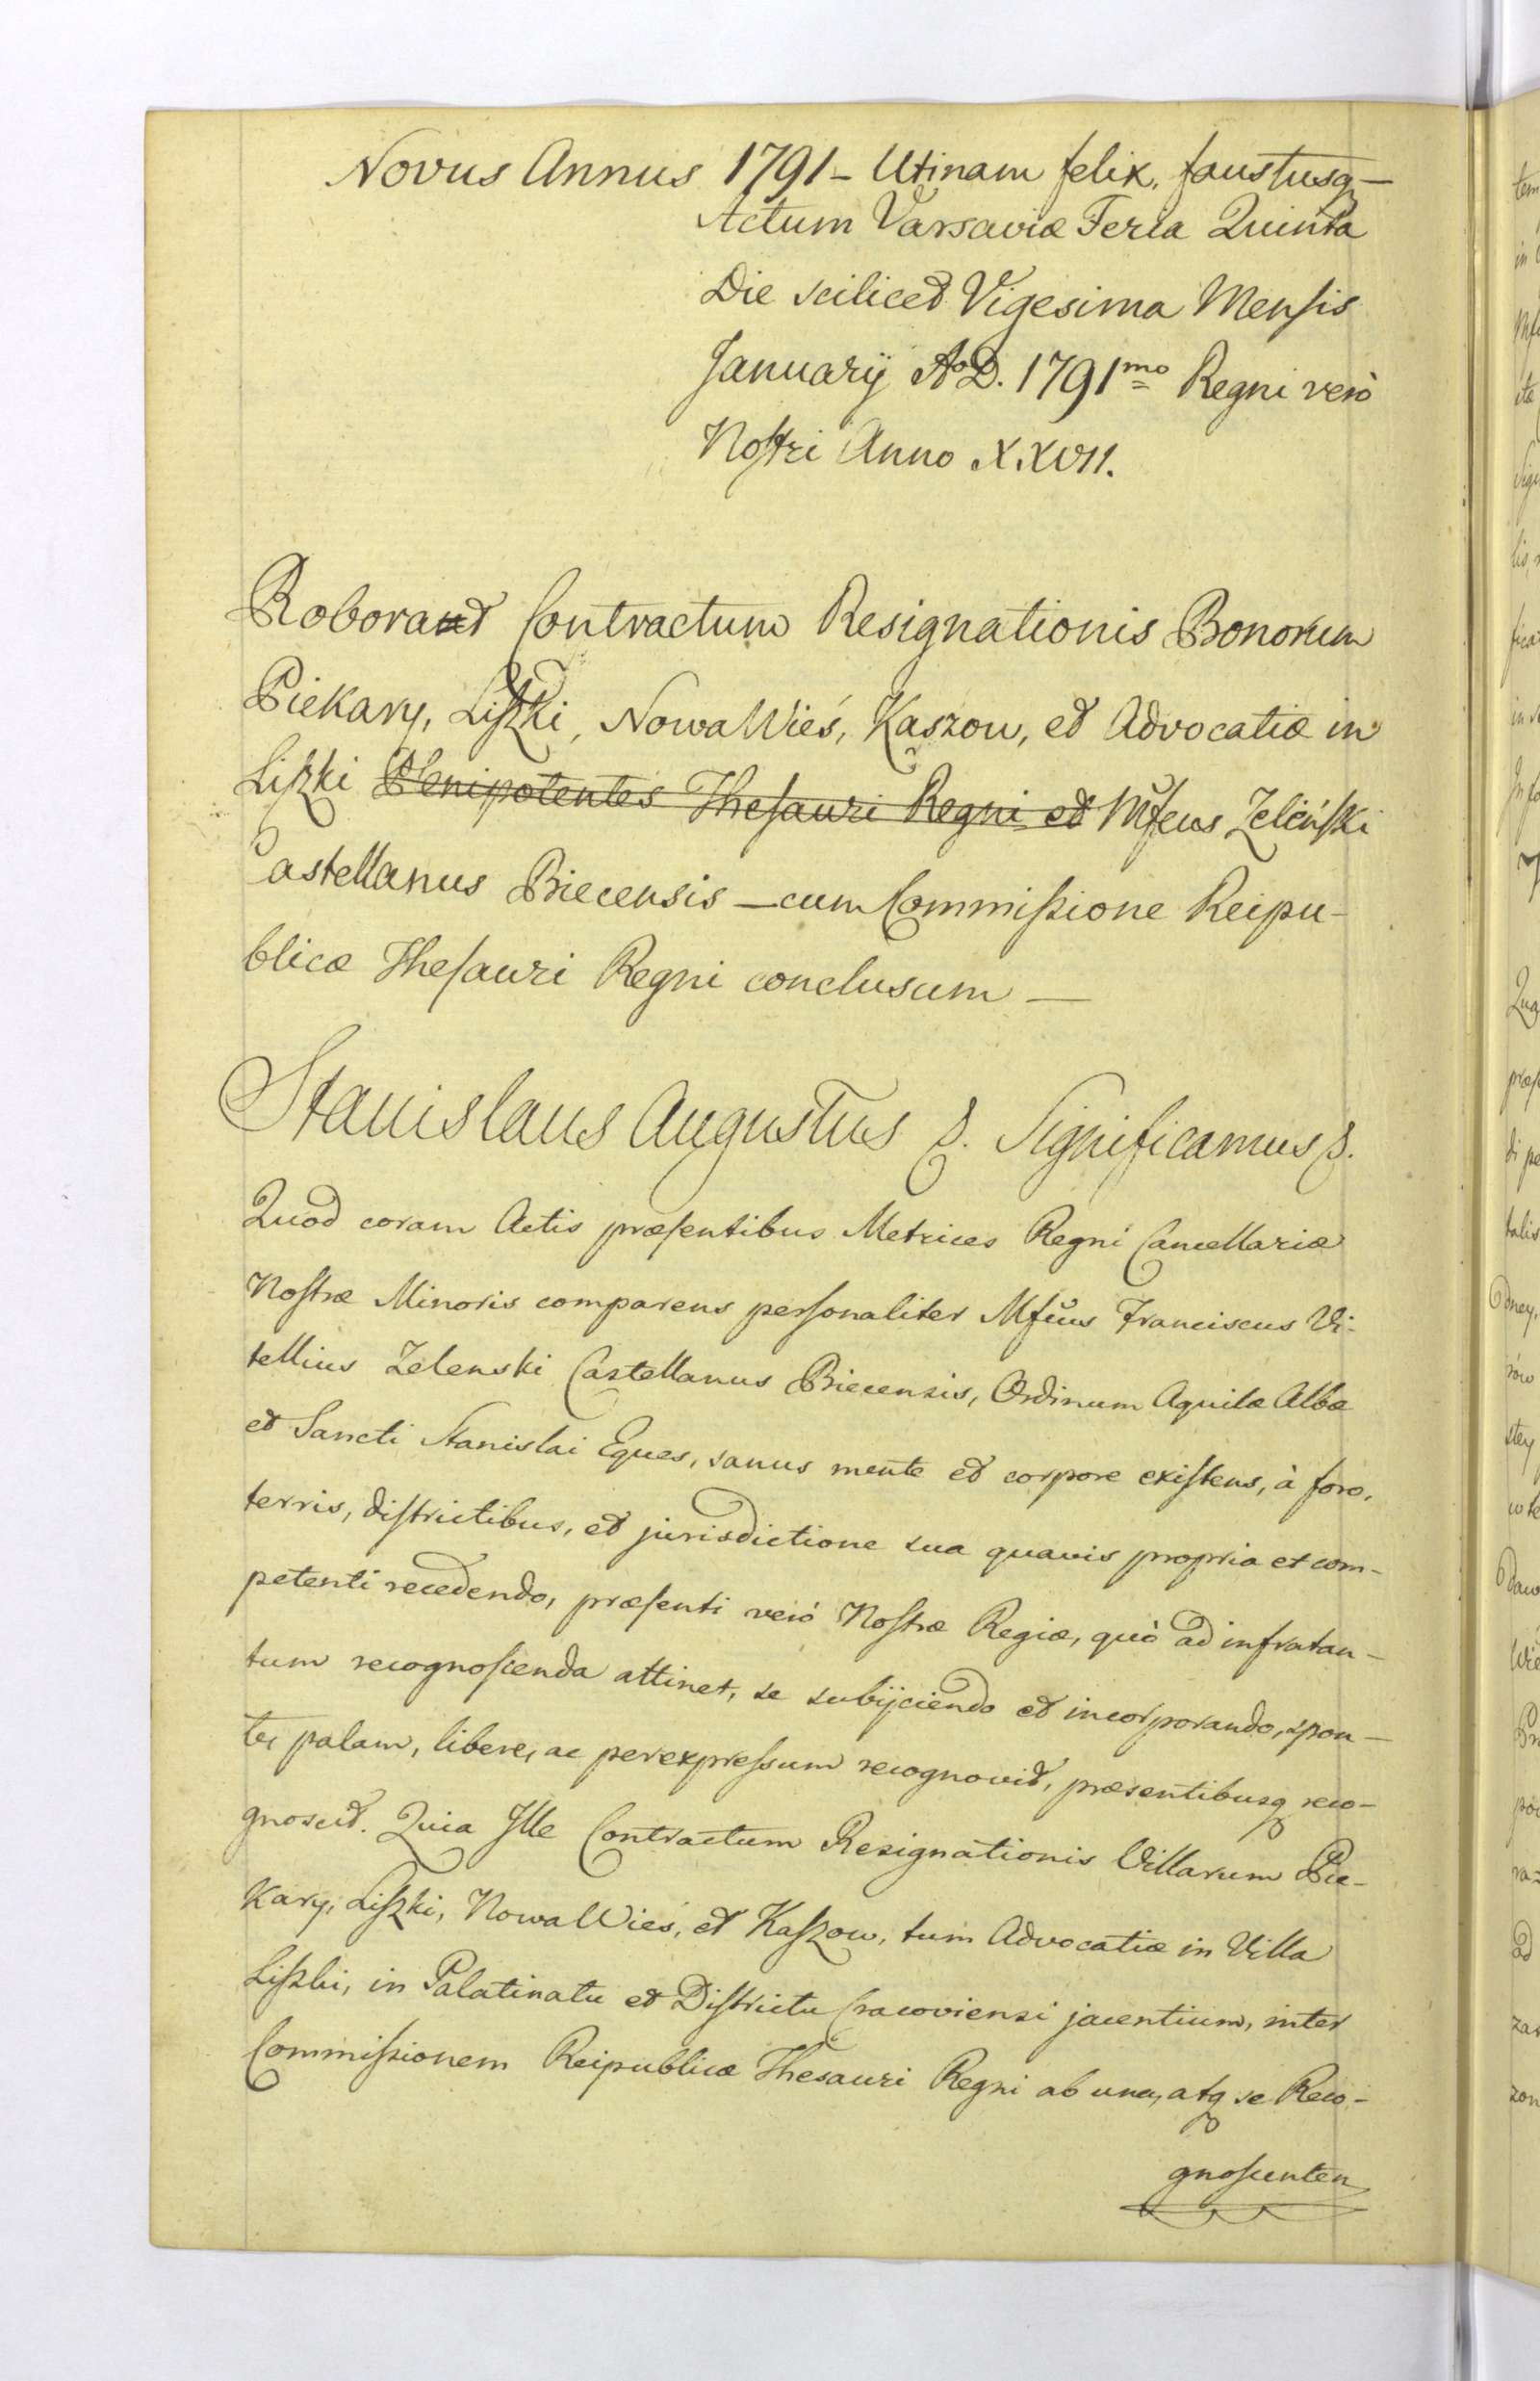 Novus Annus 1791 – Utinam felix, faustusq –
Actum Varsaviæ Feria Quinta
Die scilicet Vigesima Mensis
January A.o D. 1791mo Regni verò
Nostri Anno XXVII.
Roborat Contractum Resignationis Bonorum
Piekary, Liszki, Nowa Wieś, Kaszow, et Advocatiæ in
Liszki Plenipotentes Thesauri Regni et Mfcus Zeleński
Castellanus Biecensis – cum Commissione Reipu-
blicæ Thesauri Regni conclusum –
Stanislaus Augustus &. Significamus &.
Quod coram Actis præsentibus Metrices Regni Cancellariæ
Nostræ Minoris comparens personaliter Mfcus Franciscus Vi-
tellius Zelenski Castellanus Biecensis, Ordinum Aquilæ Albæ
et Sancti Stanislai Eques, sanus mente et corpore existens, à foro,
terris, districtibus, et jurisdictione sua quavis propria et com-
petenti recedendo, præsenti verò Nostræ Regiæ, quò ad infratan-
tum recognoscenda attinet, se subijciendo et incorporando, spon-
te, palam, libere, ac per expressum recognovit, præsentibusq reco-
gnoscit. Quia Ille Contractum Resignationis Villarum Pie-
kary, Liszki, Nowa Wieś, et Kaszow, tum Advocatiæ in Villa
Liszki, in Palatinatu et Districtu Cracoviensi jacentium, inter
Commissionem Reipublicæ Thesauri Regni ab una, atq se Reco-
gnoscenten